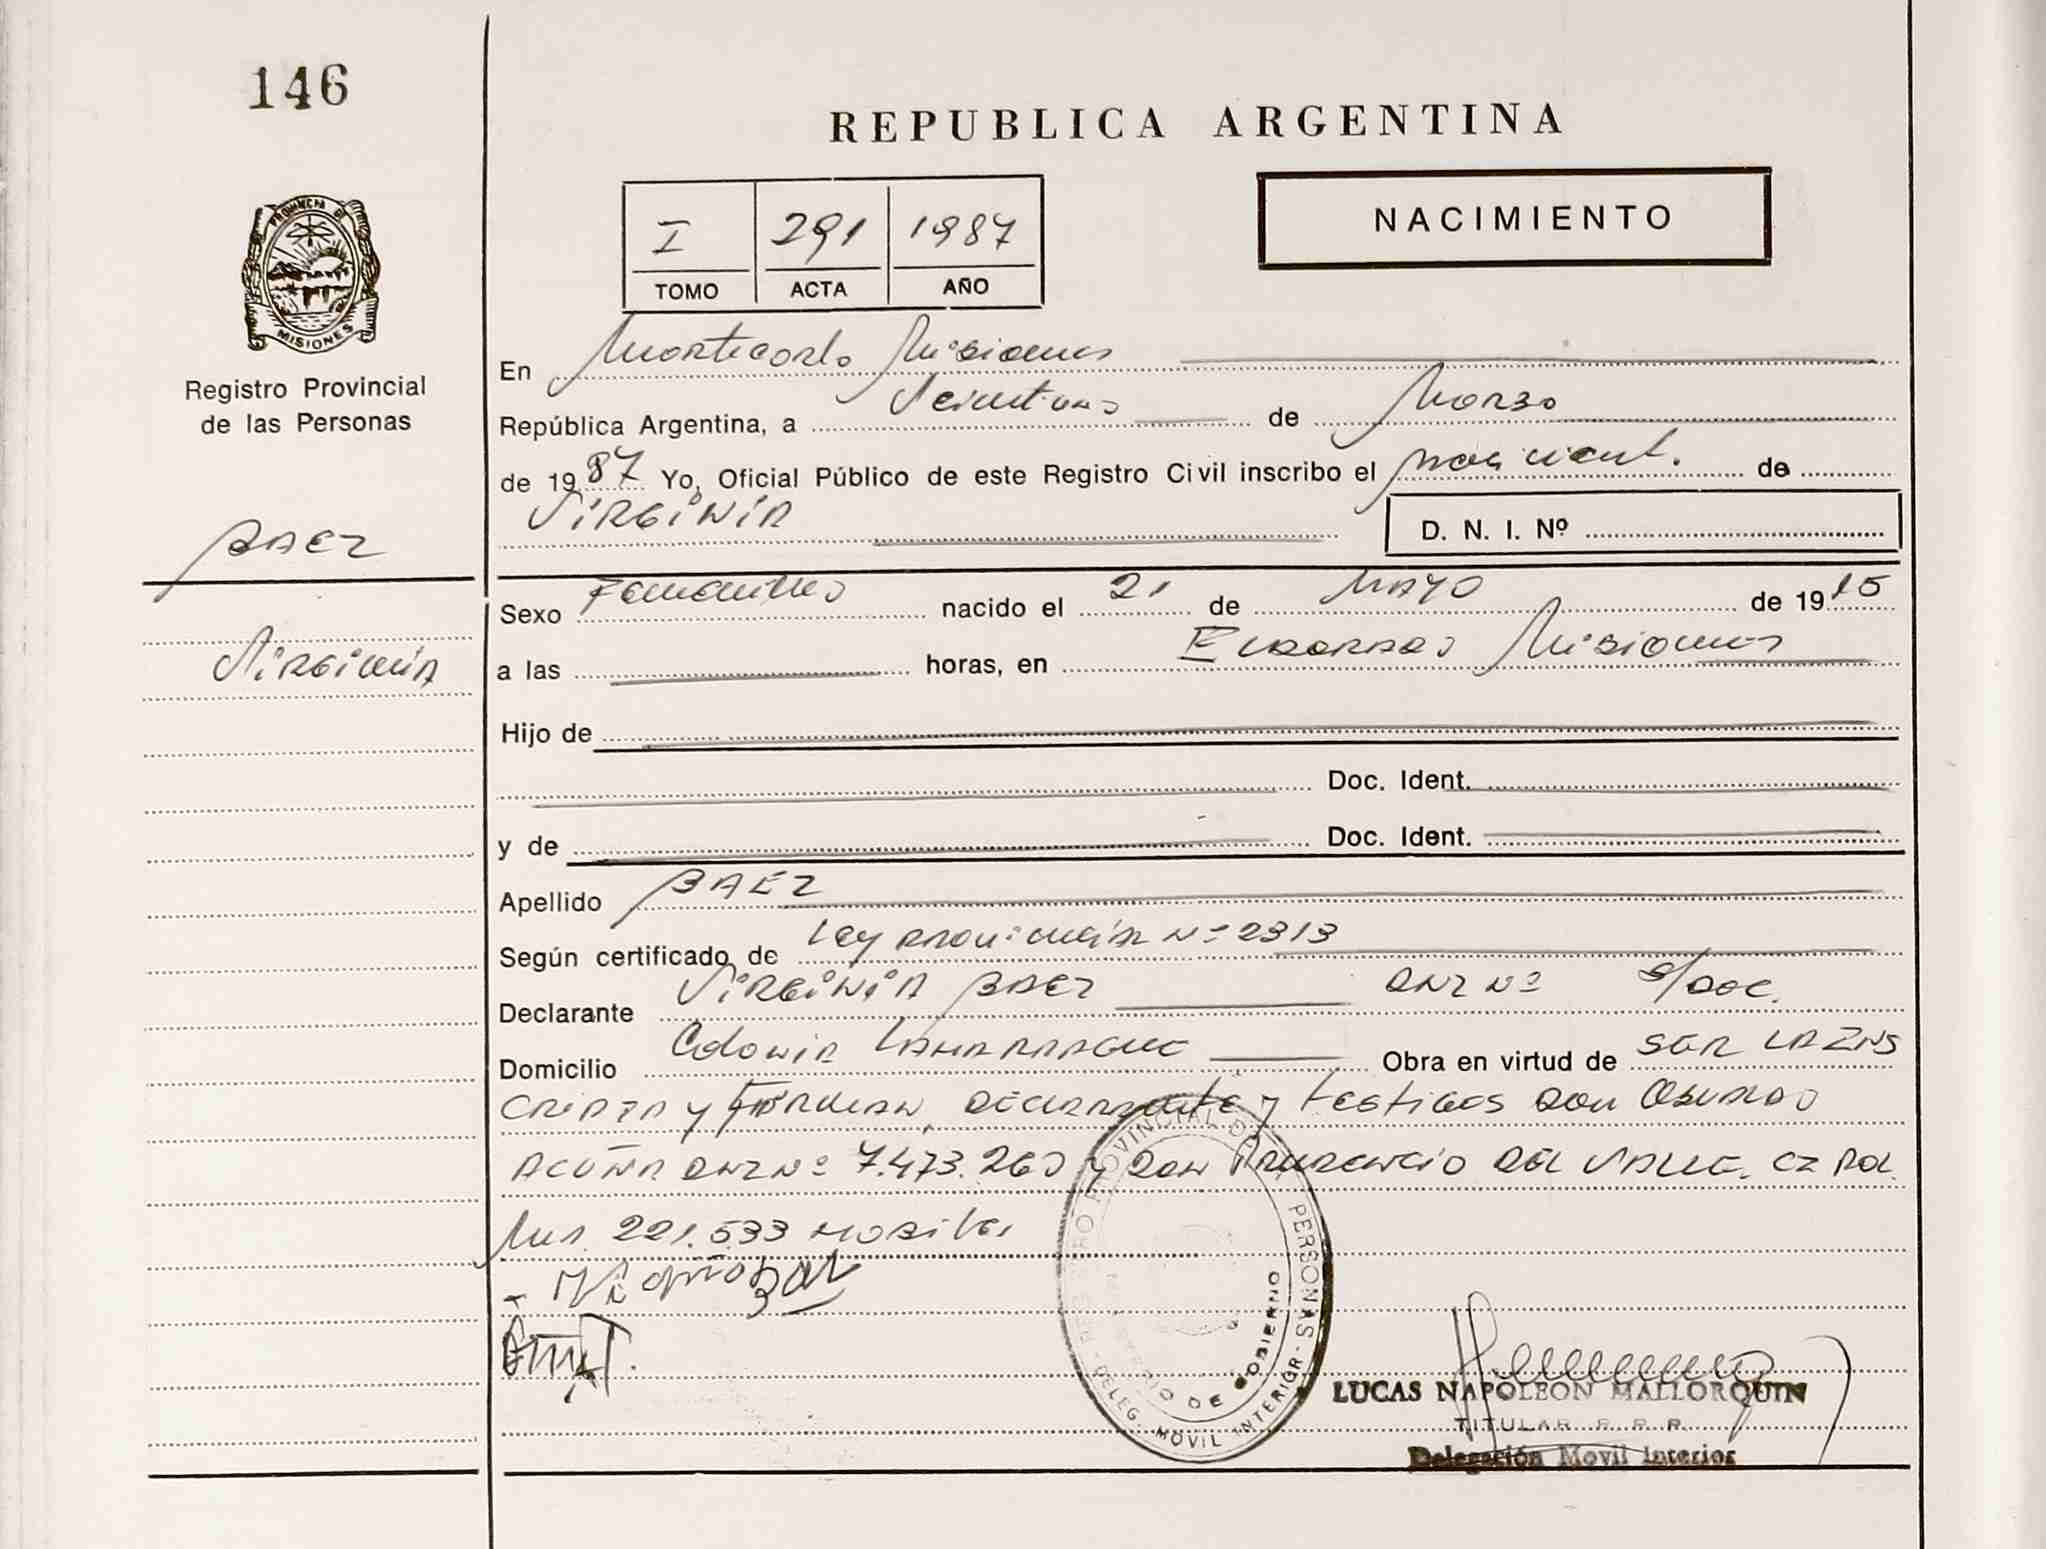 146
REPUBLICA ARGENTINA
I 291 1987
TOMO ACTA AÑO
NACIMIENTO
PROVINCIA DE
MISIONES
Registro Provincial
de las Personas
BAEZ
Virginia
En Montecarlo Misiones
República Argentina, a de Marzo
de 1987 Yo, Oficial Público de este Registro Civil inscribo el de
VIRGINIA
D. N. I. Nº
Sexo Femenino nacido el 21 de MAYO de 1915
a las horas, en Eldorado Misiones
Hijo de
Doc. Ident.
y de Doc. Ident.
Apellido BAEZ
Según certificado de Ley Provincial Nº 2313
Declarante VIRGINIA BAEZ DNI Nº S/DOC.
Domicilio Colonia LAMARAQUE Obra en virtud de
y Firman, declarante y testigos Don Osvaldo
ACUÑA DNI Nº 7.473.260 y Don Prudencio DEL VALLE. CI POL
Mis. 221.533
REGISTRO PROVINCIAL DE LAS PERSONAS
MINISTERIO DE GOBIERNO
DELEG. MOVIL INTERIOR
LUCAS NAPOLEON MALLORQUIN
TITULAR R. P. P.
Delegación Movil Interior